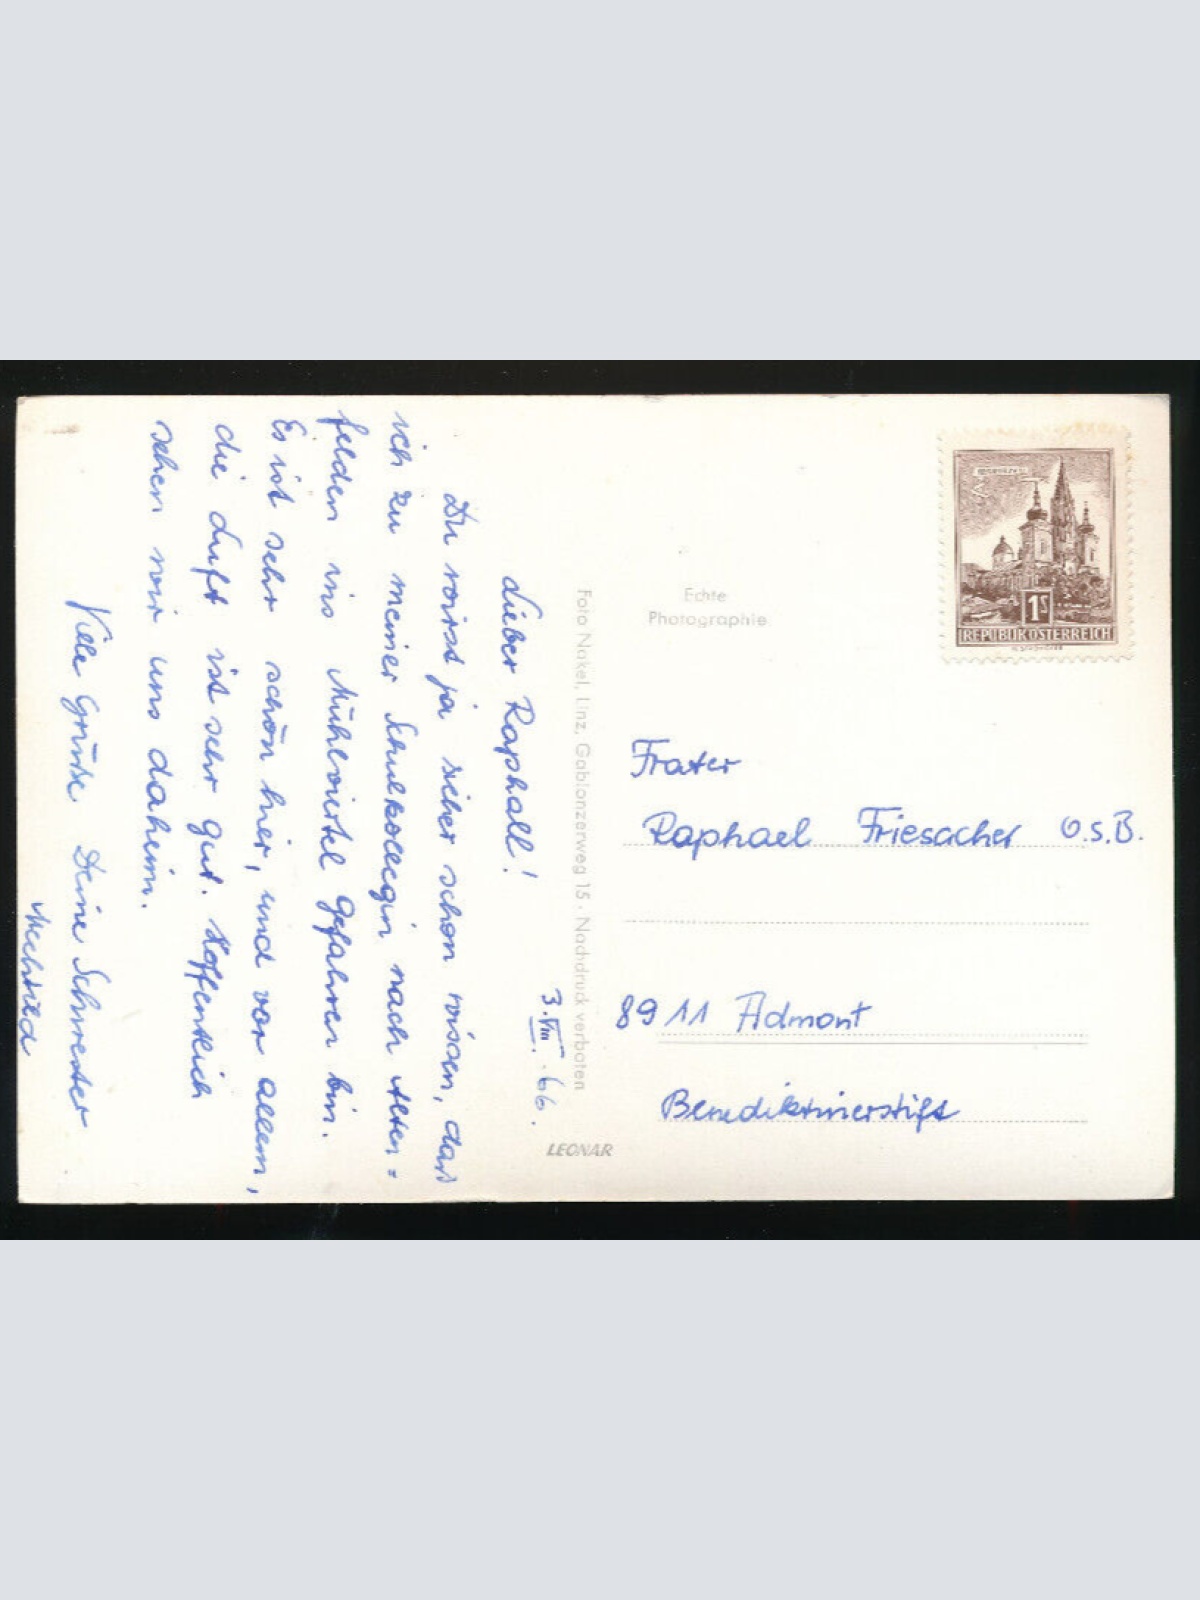 3.VIII.66.
Lieber Raphall!
Du wirst ja sicher schon wissen, das
ich zu meiner Schulkollegin nach Alten=
felden ins Mühlviertel gefahren bin.
Es ist sehr schön hier, und vor allem,
die Luft ist sehr gut. Hoffentlich
sehen wir uns daheim.
Viele Grüße Deine Schwester
Mechtild
Foto Nakel, Linz, Gablonzerweg 15 · Nachdruck verboten
LEONAR
Echte
Photographie
1S
REPUBLIK ÖSTERREICH
Frater
Raphael Friesacher O.S.B.
8911 Admont
Benediktinerstift